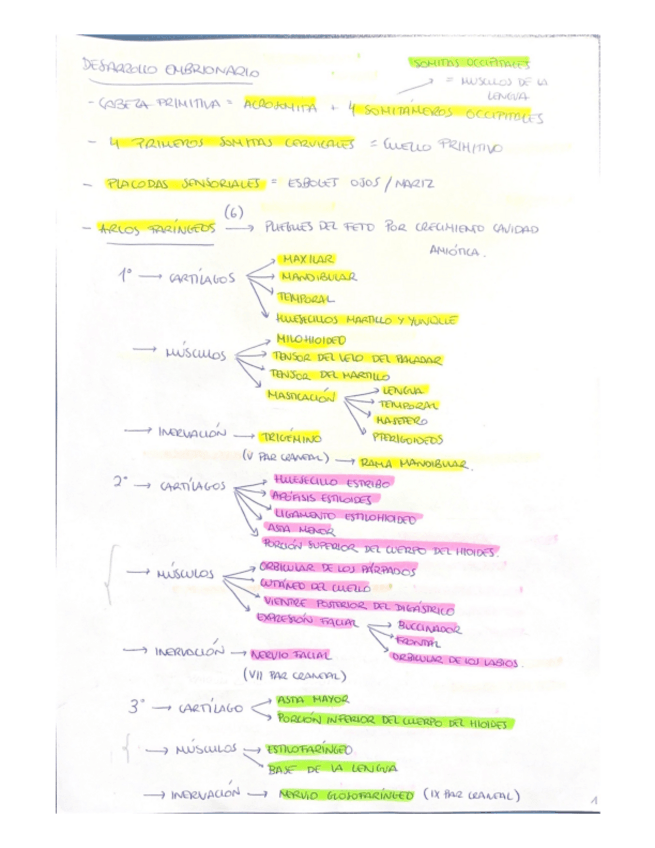 DESARROLLO EMBRIONARIO
SOMITAS OCCIPITALES
= MUSCULOS DE LA
LENGUA
- CABEZA PRIMITIVA = ACROSOMITA + 4 SOMITÁMEROS OCCIPITALES
- 4 PRIMEROS SOMITAS CERVICALES = CUELLO PRIMITIVO
- PLACODAS SENSORIALES = ESBOLET OJOS / NARIZ
(6)
- ARCOS FARÍNGEOS → PLIEGUES DEL FETO POR CRECIMIENTO CAVIDAD
AMIÓTICA.
1º → CARTÍLAGOS
MAXILAR
MANDIBULAR
TEMPORAL
HUESECILLOS MARTILLO Y YUNQUE
→ MÚSCULOS
MILOHIOIDEO
TENSOR DEL VELO DEL PALADAR
TENSOR DEL MARTILLO
MASTICACIÓN
LENGUA
TEMPORAL
MASETERO
PTERIGOIDEOS
→ INERVACIÓN → TRIGÉMINO
(V PAR CRANEAL) → RAMA MANDIBULAR.
2º → CARTÍLAGOS
HUESECILLO ESTRIBO
APÓFISIS ESTILOIDES
LIGAMENTO ESTILOHIOIDEO
ASTA MENOR
PORCIÓN SUPERIOR DEL CUERPO DEL HIOIDES.
→ MÚSCULOS
ORBICULAR DE LOS PÁRPADOS
CUTÁNEO DEL CUELLO
VIENTRE POSTERIOR DEL DIGÁSTRICO
EXPRESIÓN FACIAL
BUCCINADOR
FRONTAL
ORBICULAR DE LOS LABIOS.
→ INERVACIÓN → NERVIO FACIAL
(VII PAR CRANEAL)
3º → CARTÍLAGO
ASTA MAYOR
PORCIÓN INFERIOR DEL CUERPO DEL HIOIDES
→ MÚSCULOS → ESTILOFARÍNGEO
BASE DE LA LENGUA
→ INERVACIÓN → NERVIO GLOSOFARÍNGEO (IX PAR CRANEAL)
1